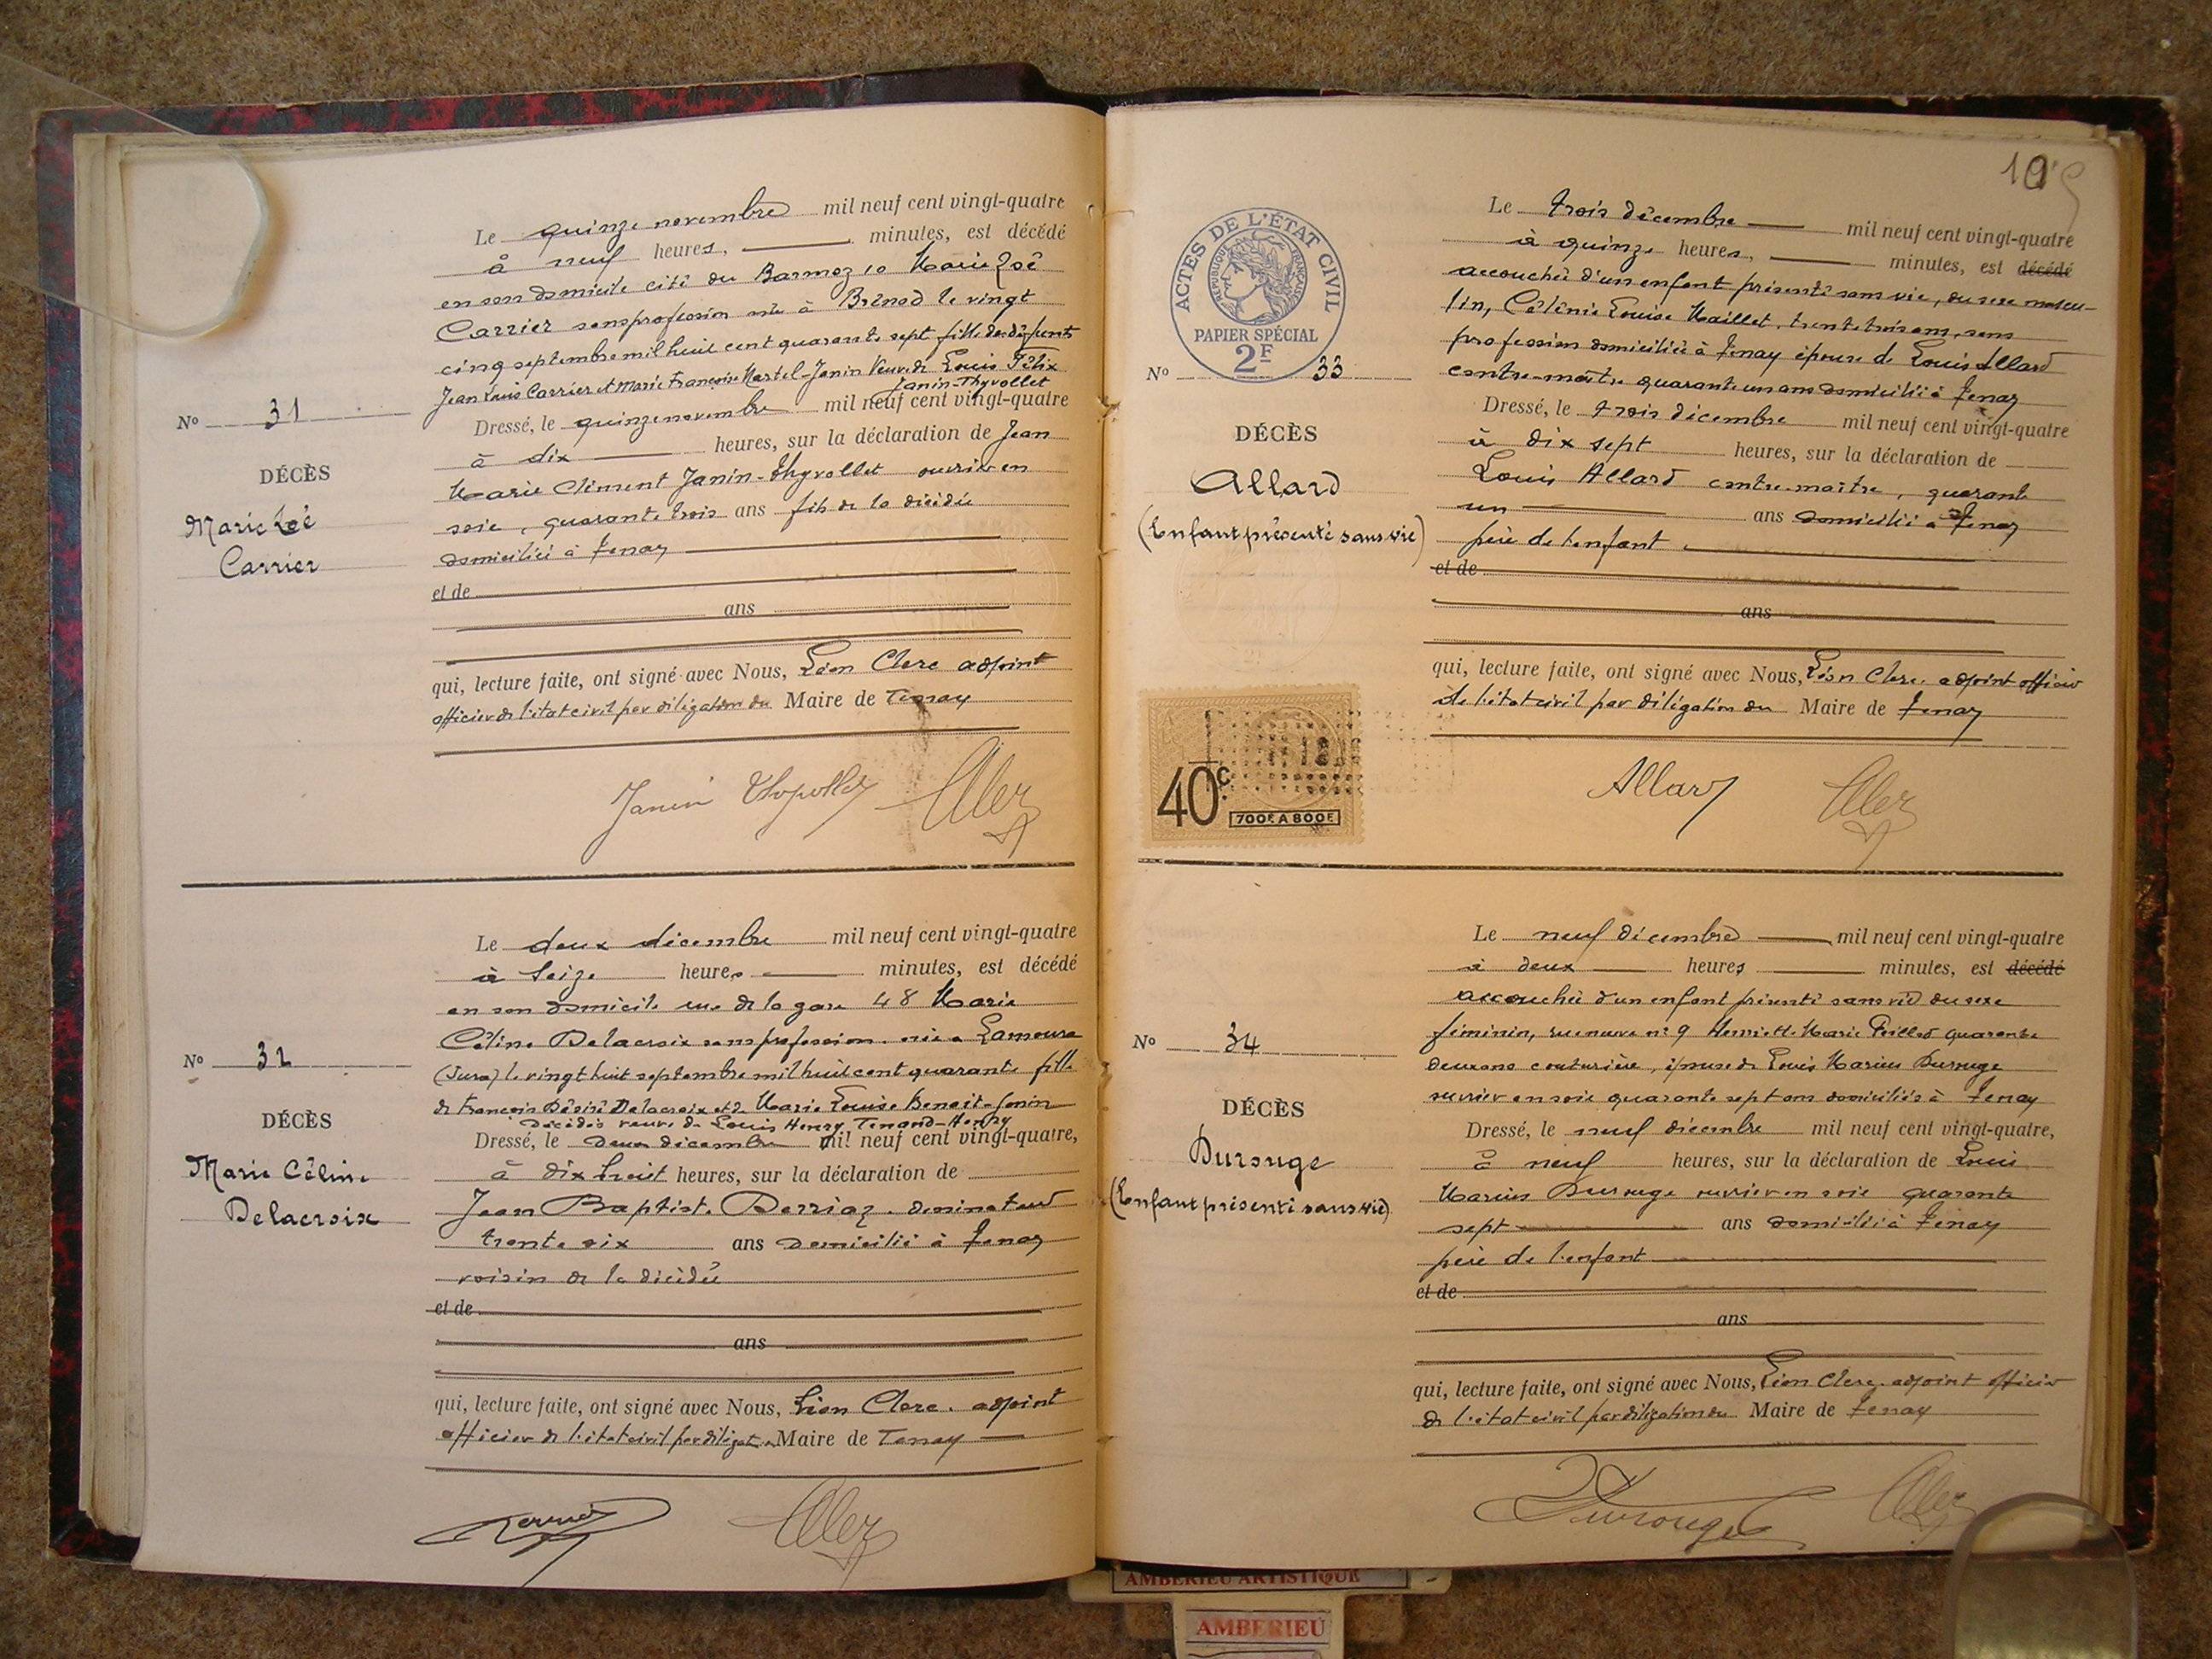 Le quinze novembre mil neuf cent vingt-quatre
à neuf heures, minutes, est décédé
en son domicile cité du Barmoz 10 Marie Zoé
Carrier sans profession née à Brénod le vingt
cinq septembre mil huit cent quarante sept fille de défunts
Jean Louis Carrier et Marie Françoise Martel-Janin Veuve de Louis Félix
Janin-Thyvollet
Dressé, le quinze novembre mil neuf cent vingt-quatre
à dix heures, sur la déclaration de Jean
Marie Clément Janin-Thyvollet ouvrier en
soie, quarante trois ans fils de la décédée
domicilié à Tenay
et de
ans
qui, lecture faite, ont signé avec Nous, Léon Clerc adjoint
officier de l'état civil par délégation du Maire de Tenay
Janin Thyvollet
No 31
DÉCÈS
Marie Zoé
Carrier
Le deux décembre mil neuf cent vingt-quatre
à seize heures minutes, est décédé
en son domicile rue de la gare 48 Marie
Céline Delacroix sans profession née à Lamoura
(Jura) le vingt huit septembre mil huit cent quarante fille
de François Désiré Delacroix et de Marie Louise Benoit-Jonin
décédés veuve de Louis Henry Tenand-Henry
Dressé, le deux décembre mil neuf cent vingt-quatre,
à dix huit heures, sur la déclaration de
Jean Baptiste Derriaz dessinateur
trente six ans domicilié à Tenay
voisin de la décédée
et de
ans
qui, lecture faite, ont signé avec Nous, Léon Clerc adjoint
officier de l'état civil par délégat. Maire de Tenay
No 32
DÉCÈS
Marie Céline
Delacroix
Le trois décembre mil neuf cent vingt-quatre
à quinze heures, minutes, est décédé
accouchée d'un enfant présenté sans vie, du sexe mascu-
lin, Célénie Louise Maillet, trente trois ans, sans
profession domiciliée à Tenay épouse de Louis Allard
contre-maître quarante un ans domicilié à Tenay
Dressé, le trois décembre mil neuf cent vingt-quatre
à dix sept heures, sur la déclaration de
Louis Allard contre-maître, quarante
un ans domicilié à Tenay
père de l'enfant
et de
ans
qui, lecture faite, ont signé avec Nous, Léon Clerc adjoint officier
de l'état civil par délégation du Maire de Tenay
Allard
ACTES DE L'ÉTAT CIVIL
RÉPUBLIQUE FRANÇAISE
PAPIER SPÉCIAL
2F
No 33
DÉCÈS
Allard
(Enfant présenté sans vie)
40c.
700F A 800F
Le neuf décembre mil neuf cent vingt-quatre
à deux heures minutes, est décédé
accouchée d'un enfant présenté sans vie du sexe
féminin, rue neuve n° 9 Henriette Marie quarante
deux ans couturière, épouse de Louis Marius Durouge
ouvrier en soie quarante sept ans domiciliés à Tenay
Dressé, le neuf décembre mil neuf cent vingt-quatre,
à neuf heures, sur la déclaration de Louis
Marius Durouge ouvrier en soie quarante
sept ans domicilié à Tenay
père de l'enfant
et de
ans
qui, lecture faite, ont signé avec Nous, Léon Clerc adjoint officier
de l'état civil par délégation du Maire de Tenay
Durouge
No 34
DÉCÈS
Durouge
(Enfant présenté sans vie)
AMBERIEU ARTISTIQUE
AMBERIEU